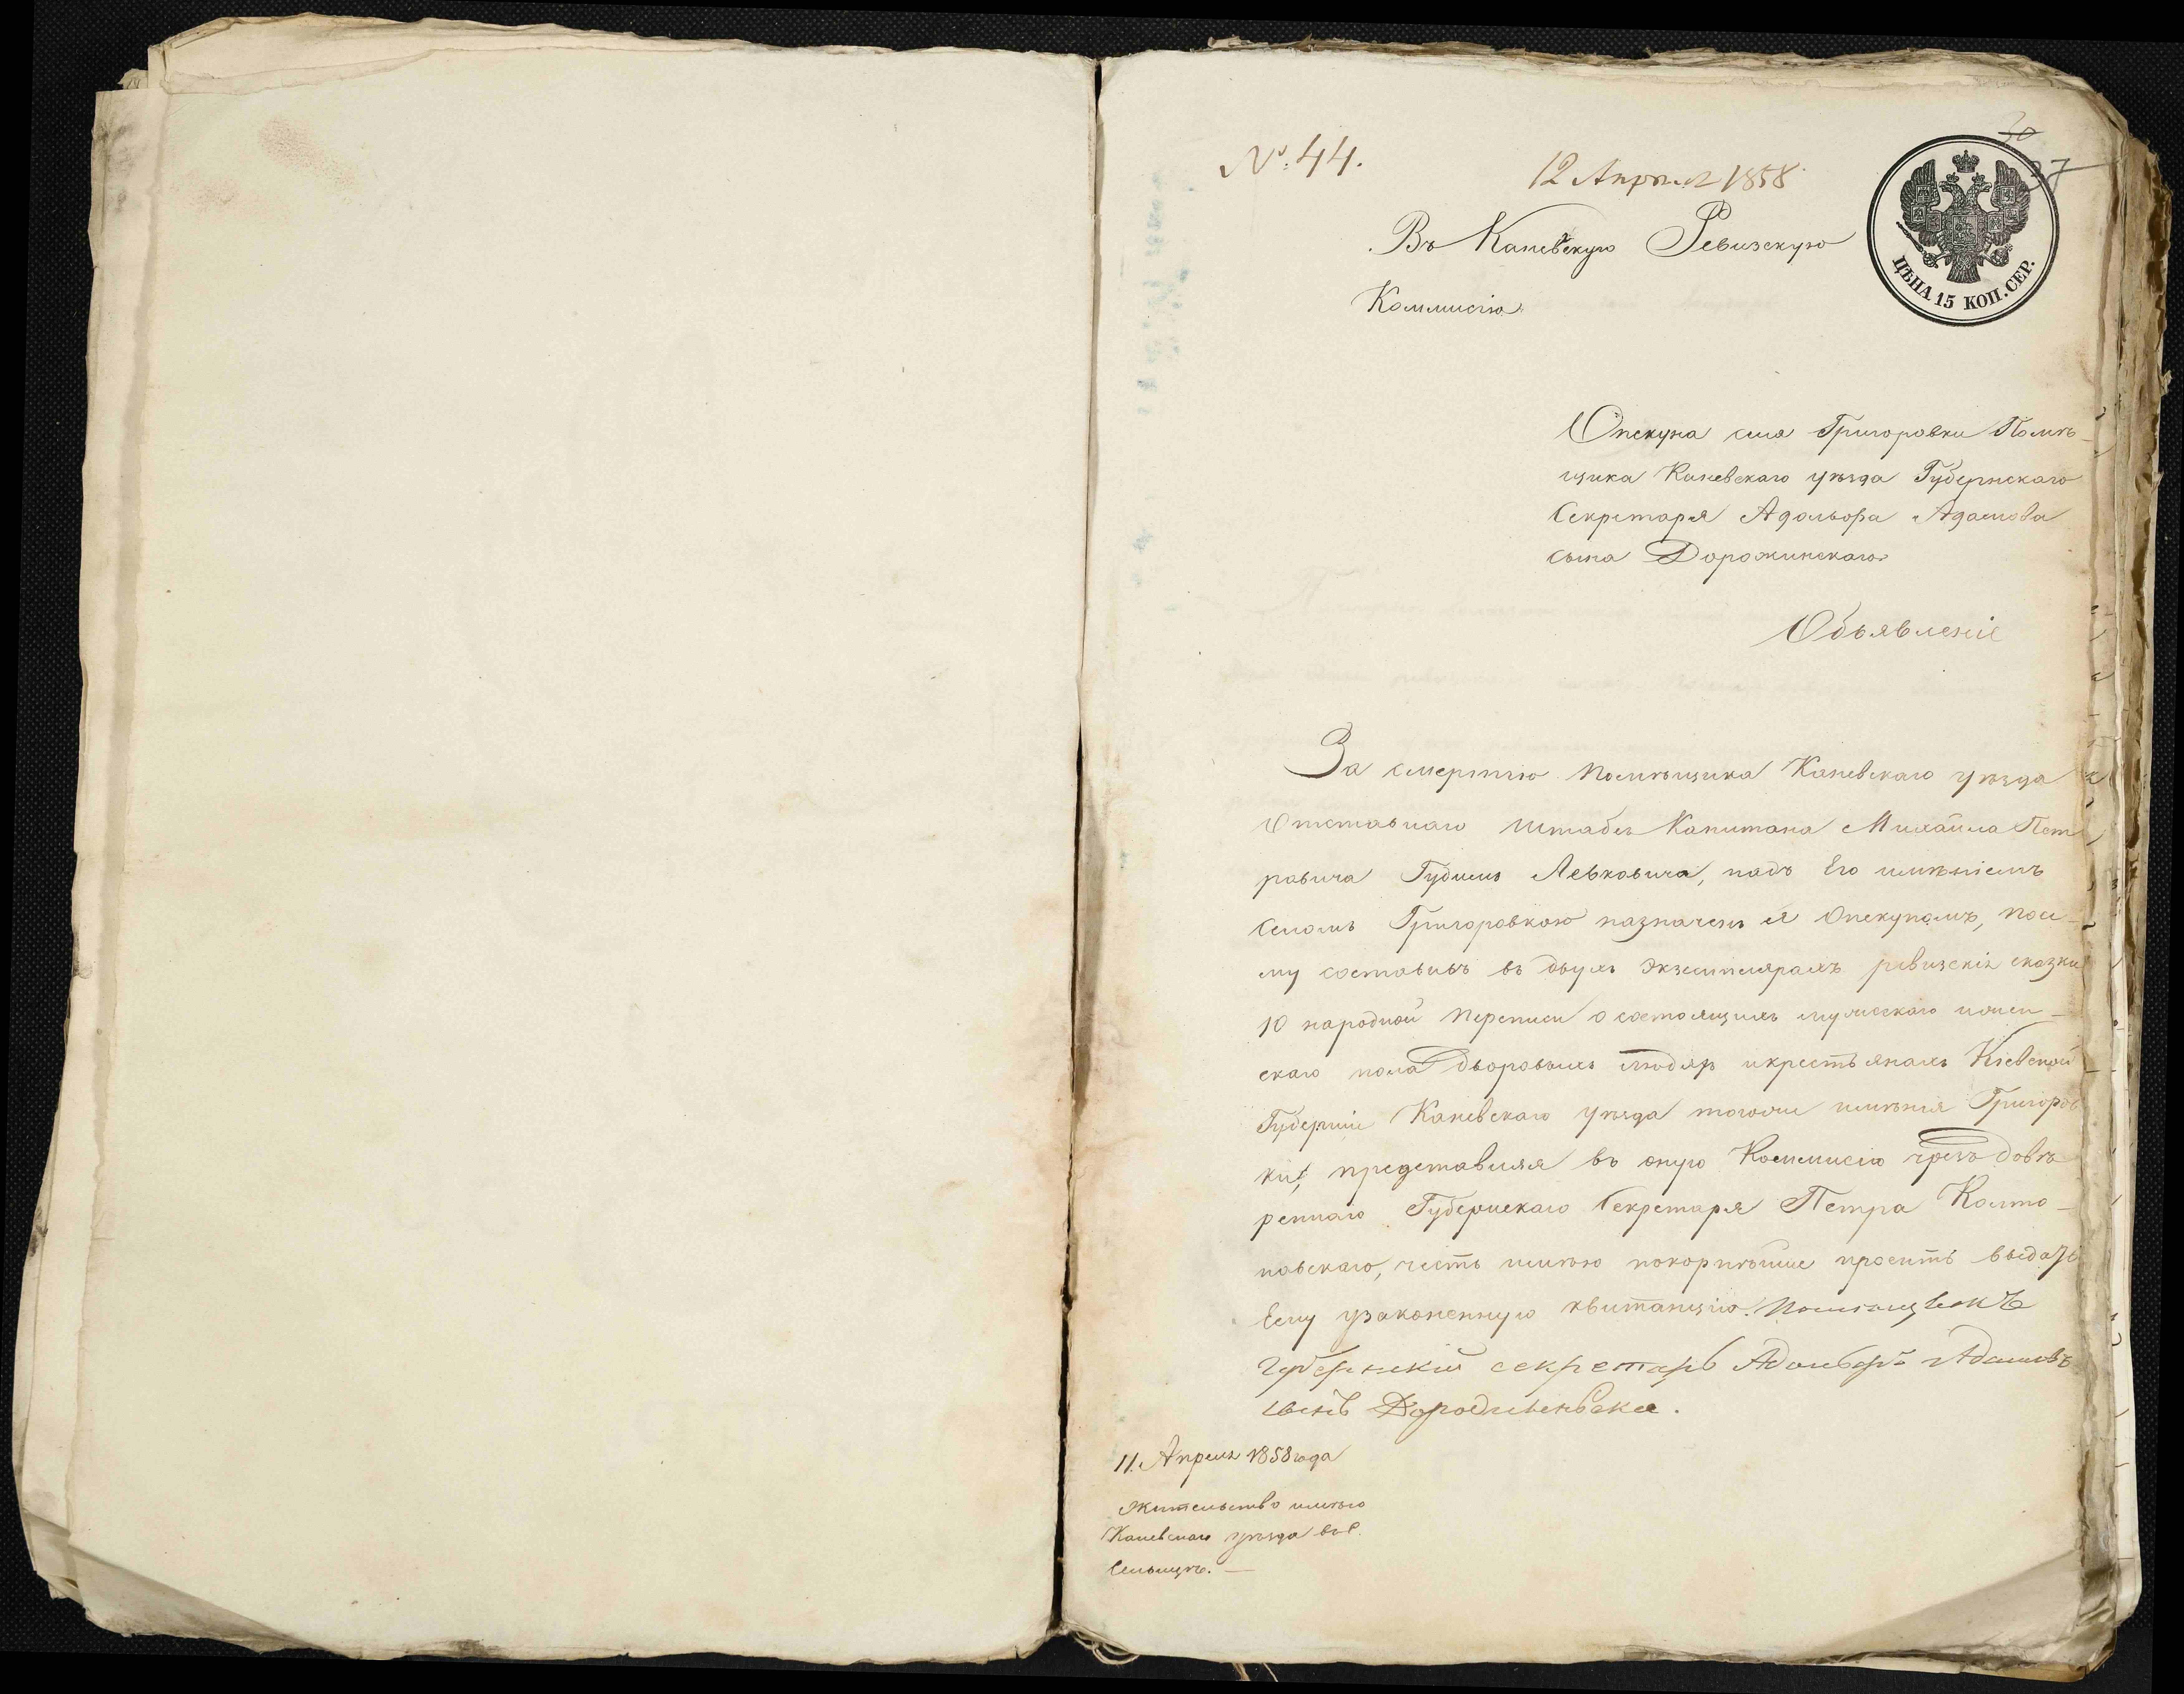 30
37
№: 44.
12 Апрѣля 1858
Въ Каневскую Ревизскую
ЦѢНА 15 КОП. СЕР.
Коммисію
Опекуна села Григоровки Помѣ-
щика Каневскаго уѣзда Губернскаго
Секретаря Адольфа Адамова
сына Дорожинскаго
Объявленіе
За смертію Помѣщика Каневскаго уѣзда
Отставнаго Штабсъ Капитана Михаила Пет
ровича Гудимъ Левковича, надъ Его имѣніемъ
Селомъ Григоровкою назначенъ я Опекуномъ, посе-
му составивъ въ двухъ Экземплярахъ ревизскія сказки
10 народной переписи о состоящихъ мужескаго ижен-
скаго пола Дворовыхъ людяхъ икрестьянахъ Кіевской
Губерніи Каневскаго Уѣзда тогоже имѣнія Григоров
ки, представляя въ оную Коммисію чрезъ довѣ
реннаго Губернскаго Секретаря Петра Колто-
новскаго, честь имѣю покорнѣйше просить выдать
Ему узаконенную квитанцію. Помещикъ
Губернский секретарь Адольфъ Адамовъ
сынъ
11. Апреля 1858 года
Жительство имѣю
Каневскаго уѣзда въ с.
Сельцѣ. —